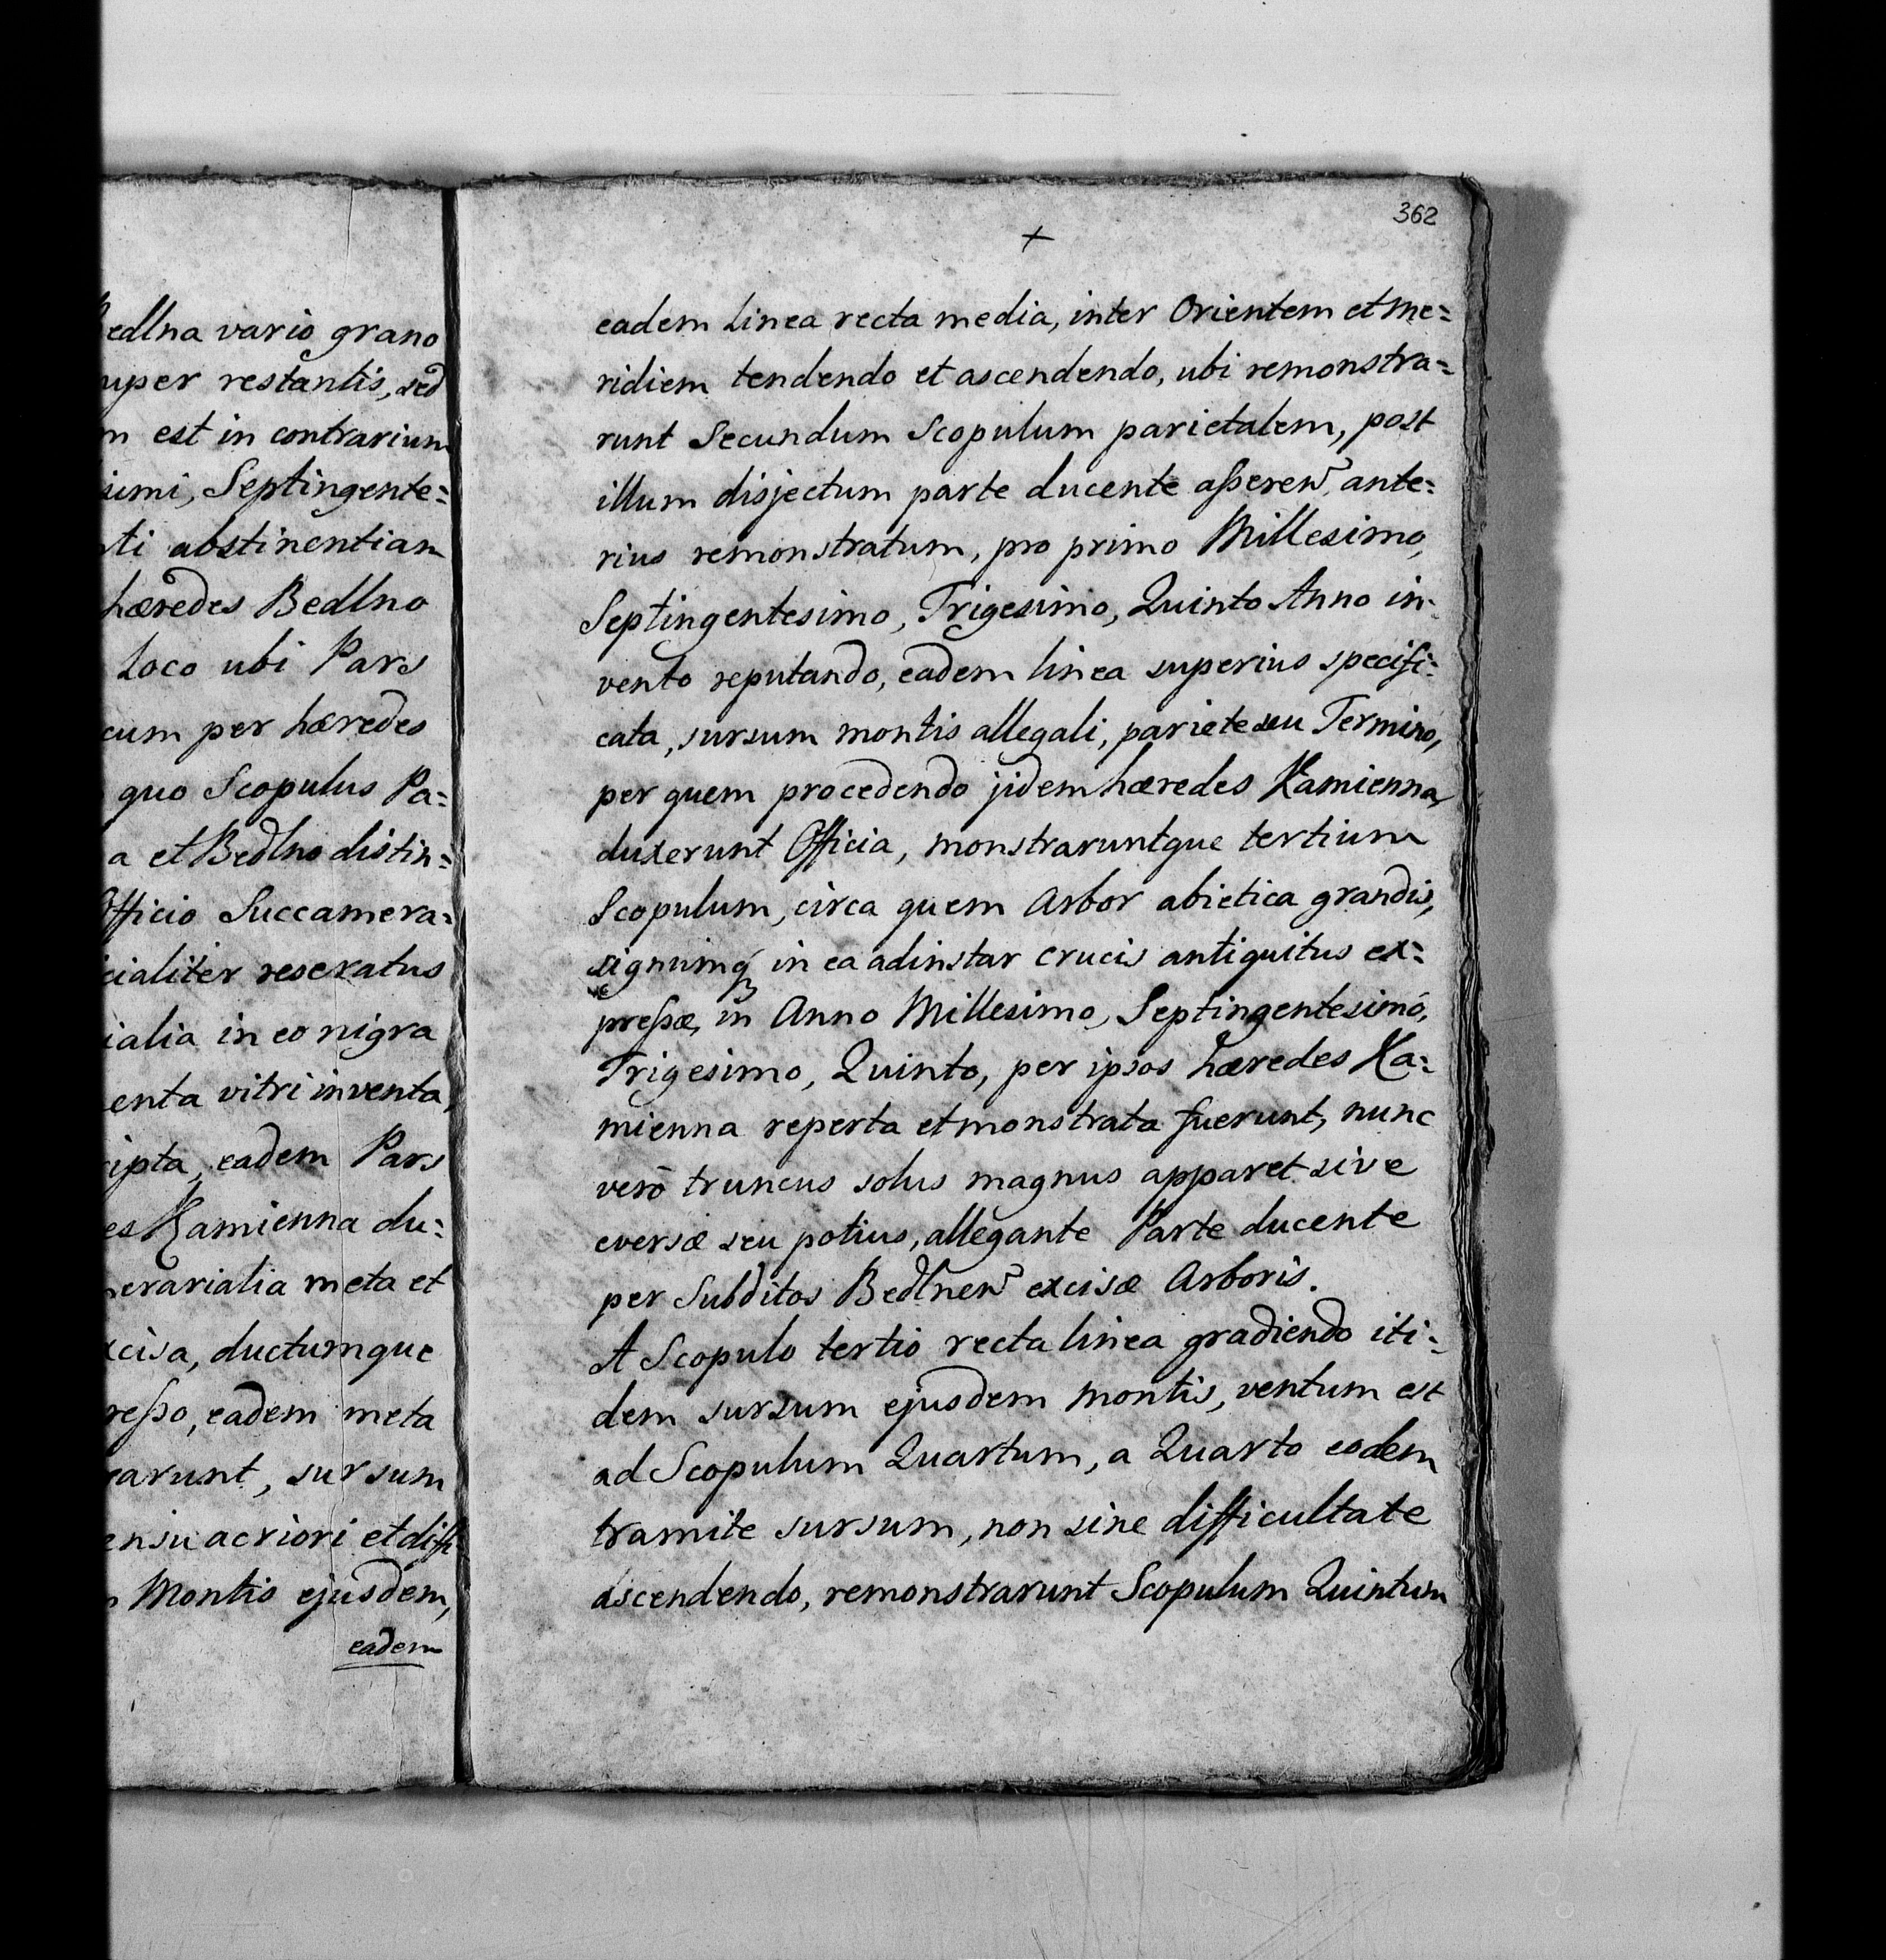 edlna vario grano
uper restantis, sed
m est in contrarium
simi, Septingente=
ti abstinentiam
hæredes Bedlno
Loco ubi Pars
cum per hæredes
quo Scopulus Pa=
a et Bedlno distin=
Officio Succamera=
cialiter resecatus
ialia in eo nigra
enta vitri inventa,
ripta, eadem Pars
es Kamienna du=
erarialia meta et
xcisa, ductumque
reßo, eadem meta
arunt, sursum
ensu acriori et diffi
Montis ejusdem,
eadem
362
+
eadem Linea recta media, inter Orientem et Me=
ridiem tendendo et ascendendo, ubi remonstra=
runt Secundum Scopulum parietalem, post
illum disjectum parte ducente aßeren̄ ante=
rius remonstratum, pro primo Millesimo,
Septingentesimo, Trigesimo, Quinto Anno in=
vento reputando, eadem linea superius specifi=
cata, sursum montis allegati, pariete seu Termino,
per quem procedendo jidem hæredes Kamienna,
duxerunt Officia, monstraruntque tertium
Scopulum, circa quem Arbor abietica grandis,
signumq́ in ea adinstar crucis antiquitus ex=
preßæ, in Anno Millesimo, Septingentesimo,
Trigesimo, Quinto, per ipsos hæredes Ka=
mienna reperta et monstrata fuerunt, nunc
verō truncus solus magnus apparet sive
eversæ seu potius, allegante Parte ducente
per Subditos Bedlnen̄ excisæ Arboris.
A Scopulo tertio recta linea gradiendo iti=
dem sursum ejusdem Montis, ventum est
ad Scopulum Quartum, a Quarto eodem
tramite sursum, non sine difficultate
ascendendo, remonstrarunt Scopulum Quintum